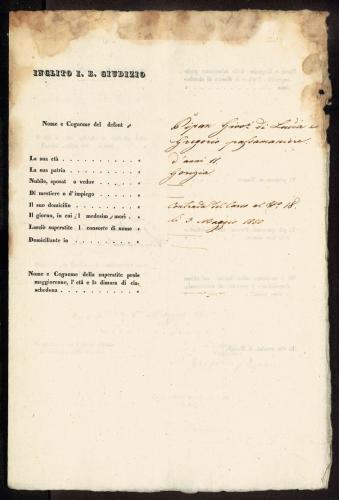 INCLITO I. R. GIUDIZIO
Nome e Cognome del defont
Gregorio passamaniere
La sua età
d'anni 11.
La sua patria
Gorizia
Nubile, sposat o vedov
Di mestiere o d'impiego
Il suo domicilio
Contrada del Corso al N° 18.
Il giorno, in cui l medesim morì
li 3 Maggio 1850
Lasciò superstite l consorte di nome
Domiciliante in
Nome e Cognome della superstite prole
maggiorenne, l' età e la dimora di cia-
scheduna